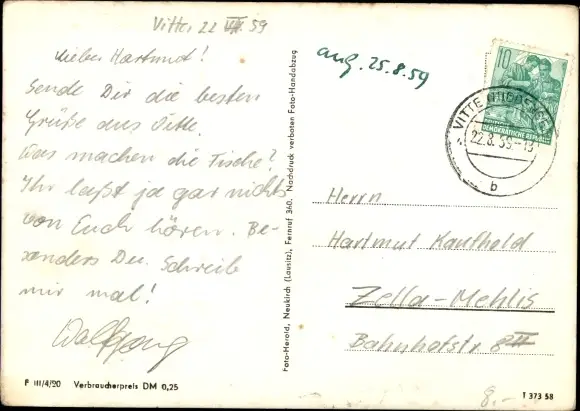 Vitte, 22. VIII. 59
Lieber Hartmut!
Sende Dir die besten
Grüße aus Vitte.
Was machen die Fische?
Ihr laßt ja gar nichts
von Euch hören. Be-
sonders Du. Schreib
mir mal!
Wolfgang
F III/4/20 Verbraucherpreis DM 0,25
Foto-Herold, Neukirch (Lausitz), Fernruf 360. Nachdruck verboten Foto-Handabzug
ang. 25.8.59
10
DEMOKRATISCHE REPUBLIK
VITTE (HIDDENSEE)
22.8.59-13
b
Herrn
Hartmut Kaufhold
Zella-Mehlis
Bahnhofstr. 8 II
8.-
T 373 58